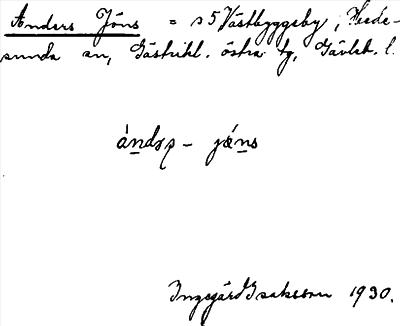 Anders Jöns = s 5 Västbyggeby, Hede-
sunda sn, Gästrikl. östra tg, Gävleb. l.
ándʂ - jǽns
Ingegärd Isaksson 1930.